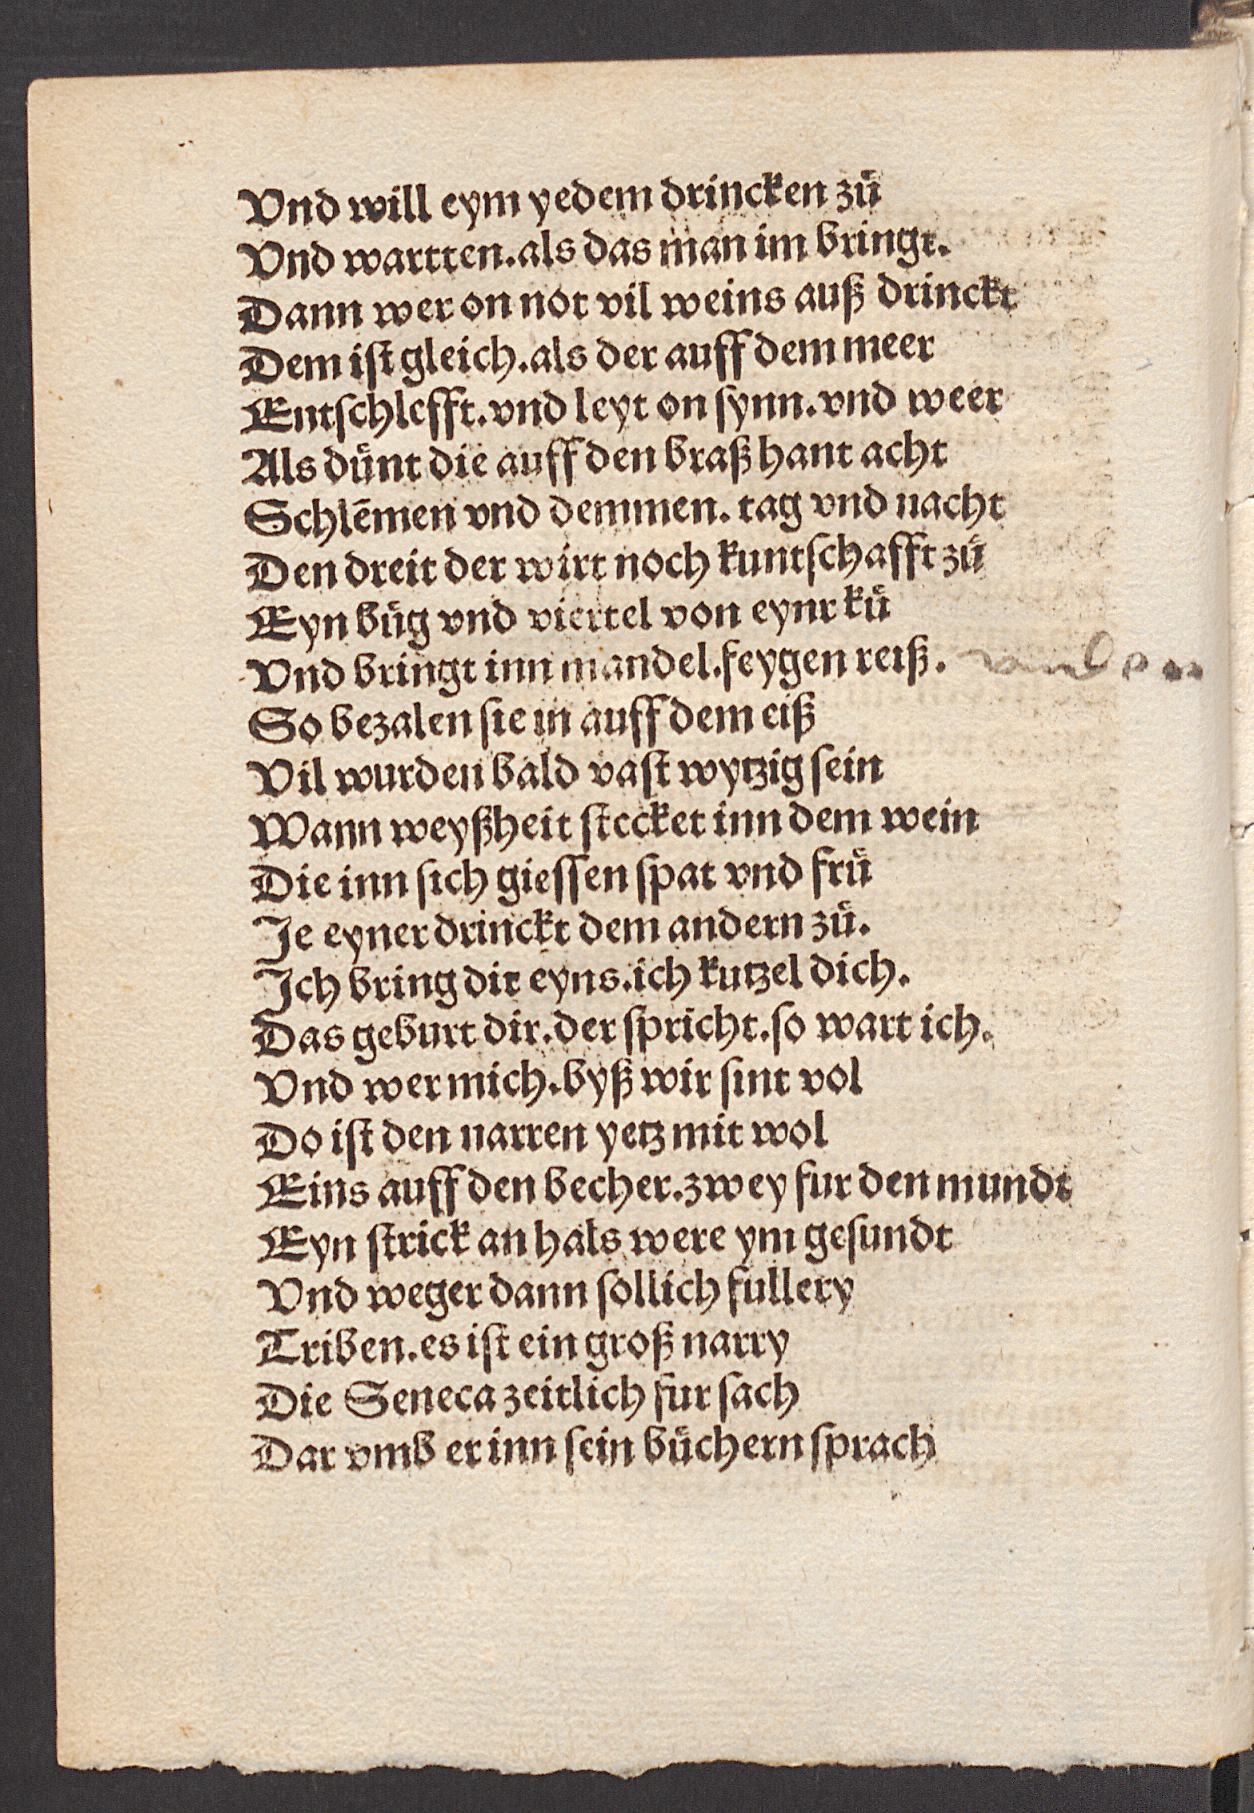 Vnd will eym yedem drincken zuͤ
Vnd wartten.als das man im bringt.
Dann wer on not vil weins auß drinckt
Dem iſt gleich.als der auff dem meer
Entſchlefft.vnd leyt on ſynn.vnd weer
Als duͤnt die auff den braß hant acht
Schlēmen vnd demmen. tag vnd nacht
Den dreit der wirt noch kuntſchafft zuͤ
Eyn buͤg vnd viertel von eynr kuͤ
Vnd bringt inn mandel.feygen reiß.
So bezalen ſie in auff dem eiß
Vil wurden bald vaſt wytzig ſein
Wann weyßheit ſtecket inn dem wein
Die inn ſich gieſſen ſpat vnd fruͤ
Je eyner drinckt dem andern zuͤ.
Ich bring dir eyns.ich kutzel dich.
Das geburt dir.der ſpricht.ſo wart ich.
Vnd wer mich.byß wir ſint vol
Do iſt den narren yetz mit wol
Eins auff den becher.zwey fur den mundt
Eyn ſtrick an hals were ym geſundt
Vnd weger dann ſollich fullery
Triben.es iſt ein groß narry
Die Seneca zeitlich fur ſach
Dar vmb er inn ſein buͤchern ſprach